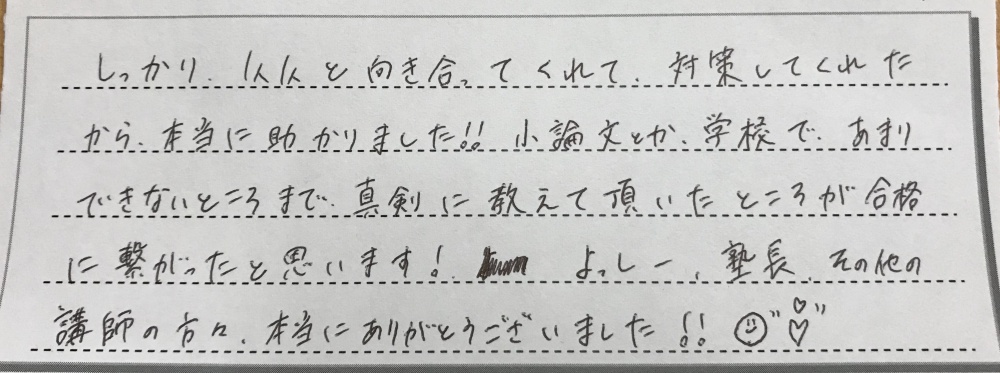 しっかり、1人1人と向き合ってくれて、対策してくれた
から、本当に助かりました!! 小論文とか、学校で、あまり
できないところまで、真剣に教えて頂いたところが合格
に繋がったと思います! よっしー、塾長、その他の
講師の方々、本当にありがとうございました!!